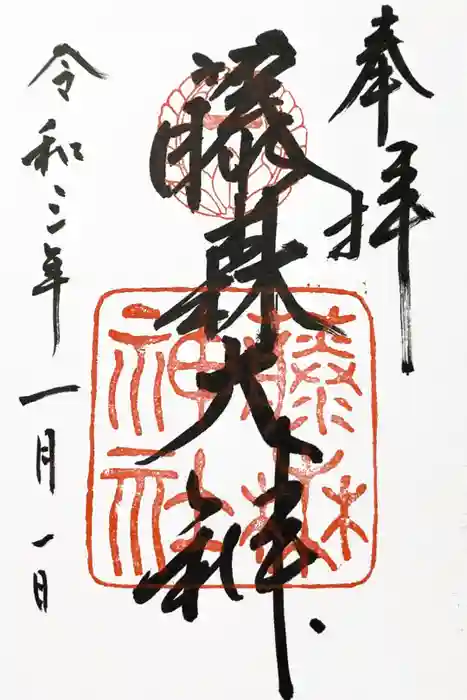 奉拝
藤森大神
藤森神社
令和三年一月一日